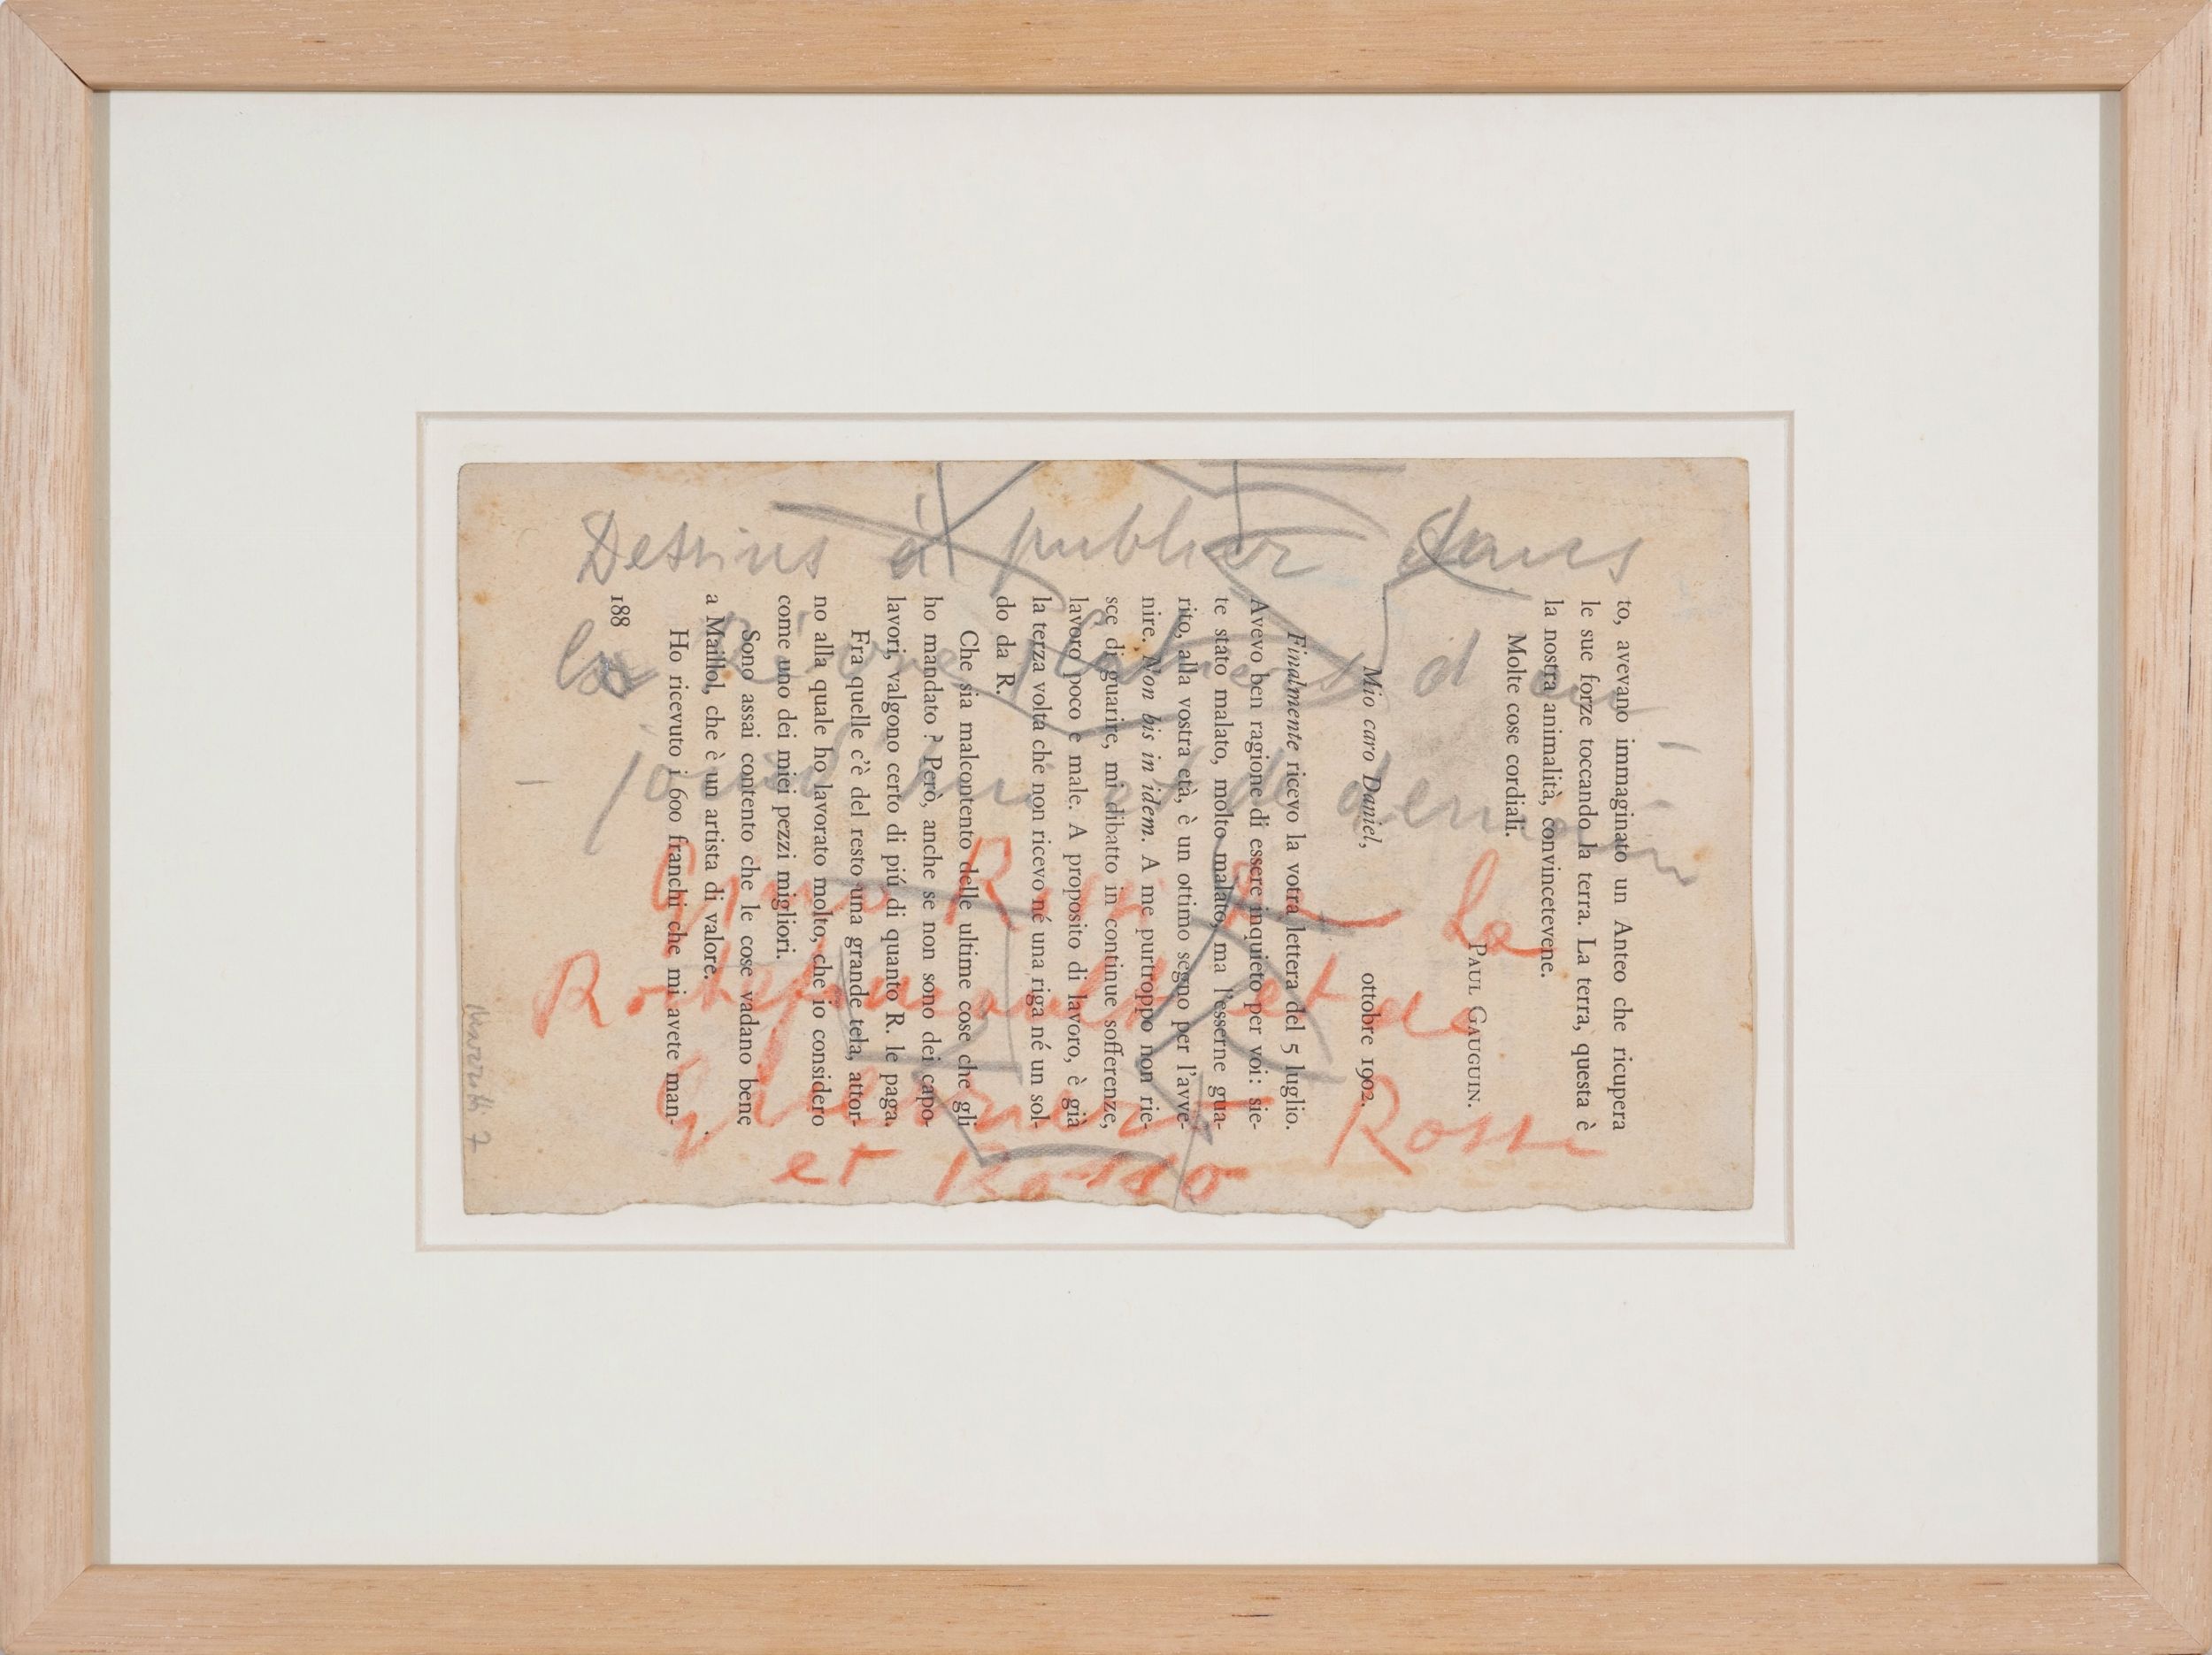 to, avevano immaginato un Anteo che ricupera
le sue forze toccando la terra. La terra, questa è
la nostra animalità, convincetevene.
Molte cose cordiali.
PAUL GAUGUIN.
Mio caro Daniel,
ottobre 1902.
Finalmente ricevo la votra lettera del 5 luglio.
Avevo ben ragione di essere inquieto per voi: sie-
te stato malato, molto malato, ma l'esserne gua-
rito, alla vostra età, è un ottimo segno per l'avve-
nire. Non bis in idem. A me purtroppo non rie-
sce di guarire, mi dibatto in continue sofferenze,
lavoro poco e male. A proposito di lavoro, è già
la terza volta che non ricevo né una riga né un sol-
do da R.
Che sia malcontento delle ultime cose che gli
ho mandato ? Però, anche se non sono dei capo-
lavori, valgono certo di piú di quanto R. le paga.
Fra quelle c'è del resto una grande tela, attor-
no alla quale ho lavorato molto, che io considero
come uno dei miei pezzi migliori.
Sono assai contento che le cose vadano bene
a Maillol, che è un artista di valore.
Ho ricevuto i 600 franchi che mi avete man-
188
Dessins à publier dans
la d'au
jourd'hui et de demain
de La
Rochefoucault et de
Rossi
et Rosso